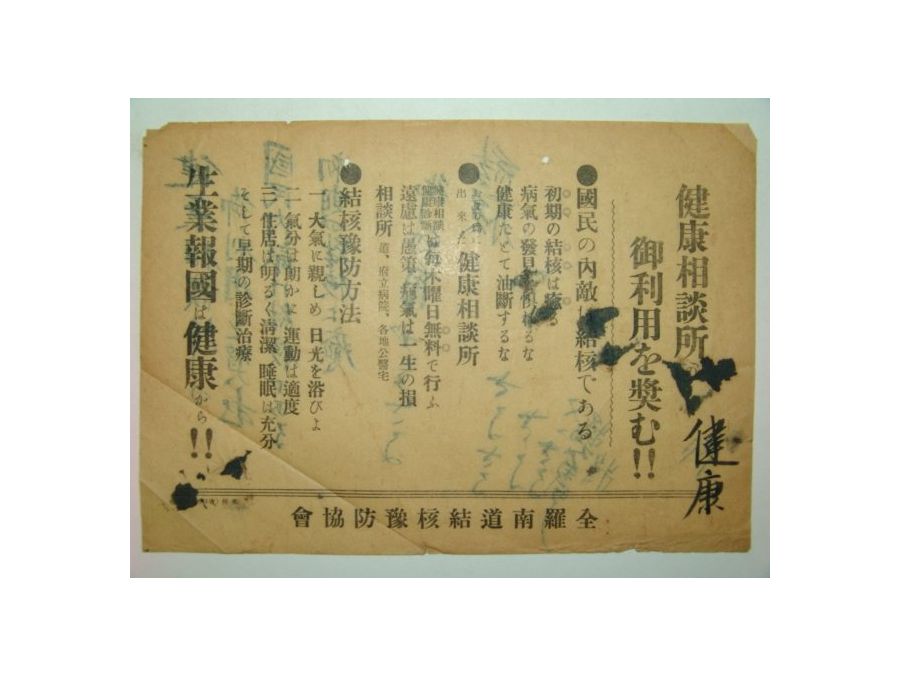 健康相談所
御利用を奬む!!
健康
●國民の內敵は結核である
初期の結核は癒る
病氣の發見を惧れるな
健康だとて油斷するな
●
出來た 健康相談所
健康相談
健康診斷 は每木曜日無料で行ふ
遠慮は愚策 病氣は一生の損
相談所 道、府立病院、各地公醫宅
●結核豫防方法
一 大氣に親しめ 日光を浴びよ
二 氣分は朗かに 運動は適度
三 住居は明るく淸潔、睡眠は充分
そして早期の診斷治療
生業報國は健康から!!
全羅南道結核豫防協會